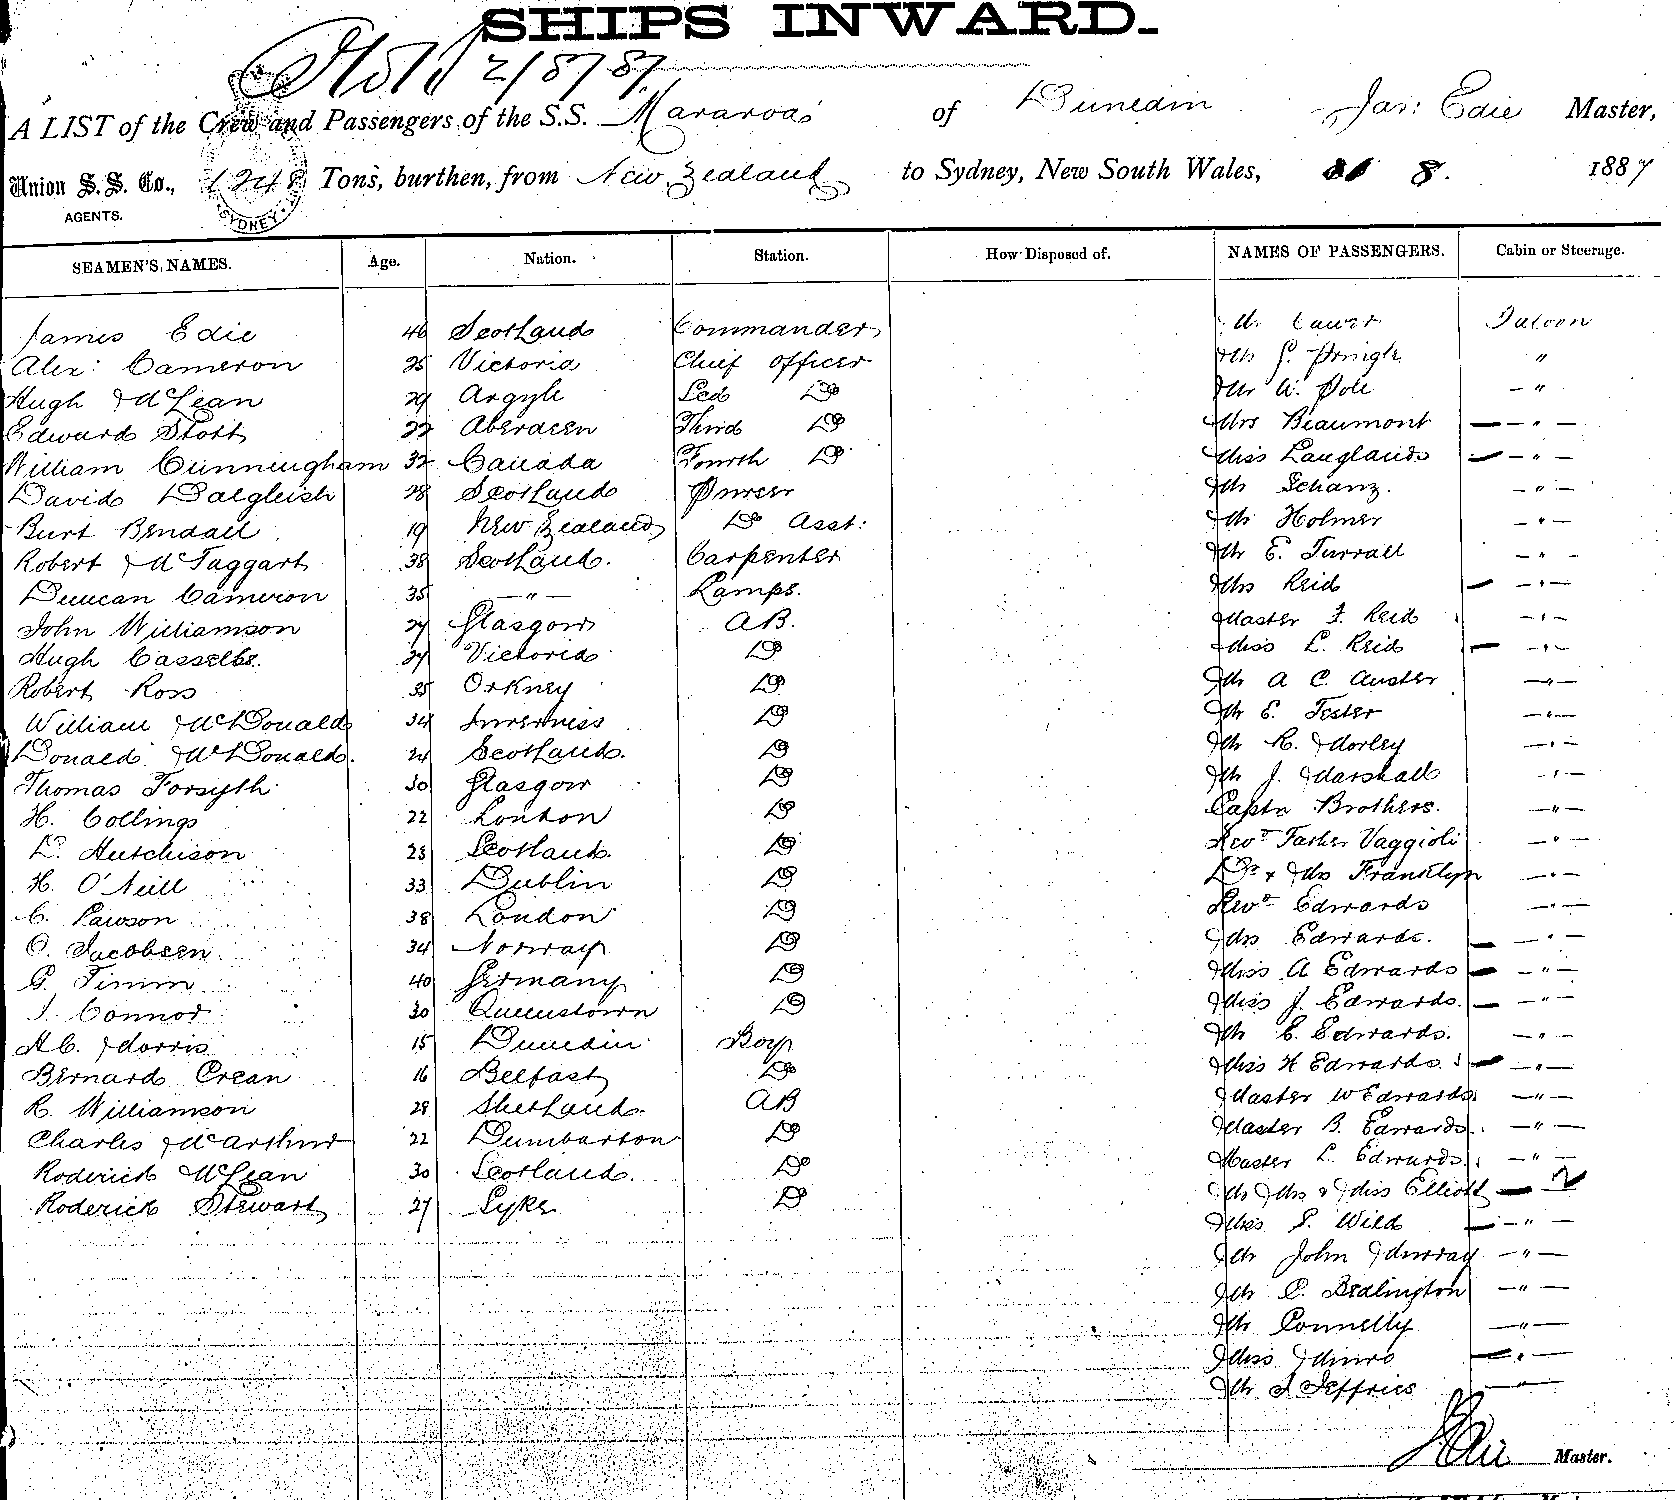 SHIPS INWARD.
2/8/87
A LIST of the Crew and Passengers of the S.S. Mararoa of Dunedin Jas: Edie Master,
Union S. S. Co., AGENTS. 1248 Tons, burthen, from New Zealand to Sydney, New South Wales, 8. 1887
SYDNEY
SEAMEN'S NAMES. Age. Nation. Station. How Disposed of. NAMES OF PASSENGERS. Cabin or Steerage.
James Edie 46 Scotland Commander Saloon
Alex: Cameron 25 Victoria Chief officer Mr S. Pringle "
Hugh McLean 29 Argyle Do Mr W. Pole - "
Edward Stott Aberdeen Third Do Mrs Beaumont - " -
William Cunningham 32 Canada Fourth Do Miss Langlands - " -
David Dalgleish 28 Scotland Purser Mr Schanz. - " -
Burt Bendall 19 New Zealand Do Asst: Mr Holmer - " -
Robert McTaggart 38 Scotland. Carpenter Mr E. Turrall - " -
Duncan Cameron 35 - " - Lamps. Mrs Reid - " -
John Williamson 27 Glasgow AB. Master F. Reid - " -
Hugh Cassells. 27 Victoria Do Miss L. Reid - " -
Robert Ross 35 Orkney Do Mr A C. Auster - " -
William McDonald 34 Inverness Do Mr E. Tester - " -
Donald McDonald. 24 Scotland. Do Mr R. Morley - " -
Thomas Forsyth 30 Glasgow Do Mr J. Marshall - " -
H. Collings 22 London Do Captn Brothers. - " -
D. Hutchison 23 Scotland. Do Revd Father Vaggioli - " -
H. O'Neill 33 Dublin Do Dr & Mrs Franklyn - " -
C. Lawson 38 London Do Revd Edwards - " -
O. Jacobsen 34 Norway Do Mrs Edwards. - " -
G. Timm 40 Germany Do Miss A Edwards - " -
J. Connor 30 Queenstown Do Miss J. Edwards. - " -
AC. Morris 15 Dunedin Boy Mr E. Edwards. - " -
Bernard Crean 16 Belfast Do Miss H Edwards. - " -
R. Williamson 28 Shetland. AB Master W Edwards - " -
Charles McArthur 22 Dumbarton Do Master B. Edwards. - " -
Roderick McLean 30 Scotland. Do Master L. Edwards. - " -
Roderick Stewart 27 Do Mr Mrs & Miss Elliott
Miss S. Wild - " -
Mr John Murray - " -
Mr C. Bedlington - " -
Mr Connelly - " -
Miss Munro - " -
Mr J Jeffries - " -
J Edie Master.